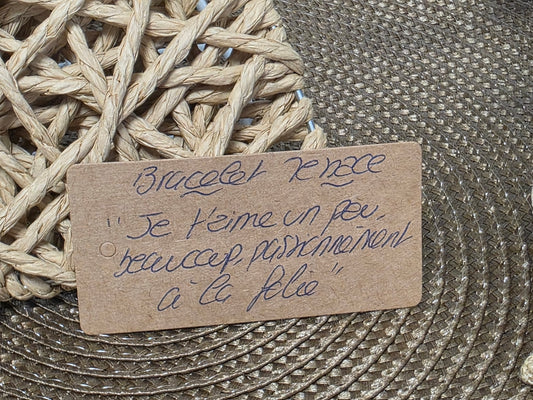 Bracelet Menace
"Je t'aime un peu,
beaucoup, passionnément
à la folie"